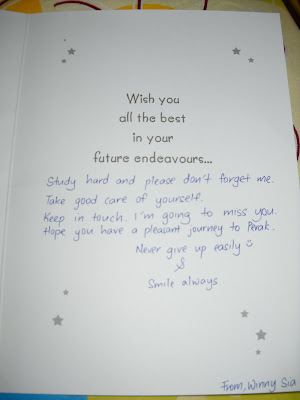 Wish you
all the best
in your
future endeavours...
Study hard and please don't forget me.
Take good care of yourself.
Keep in touch. I'm going to miss you.
Hope you have a pleasant journey to Perak.
Never give up easily ☺
&
Smile always
From, Winny Sia